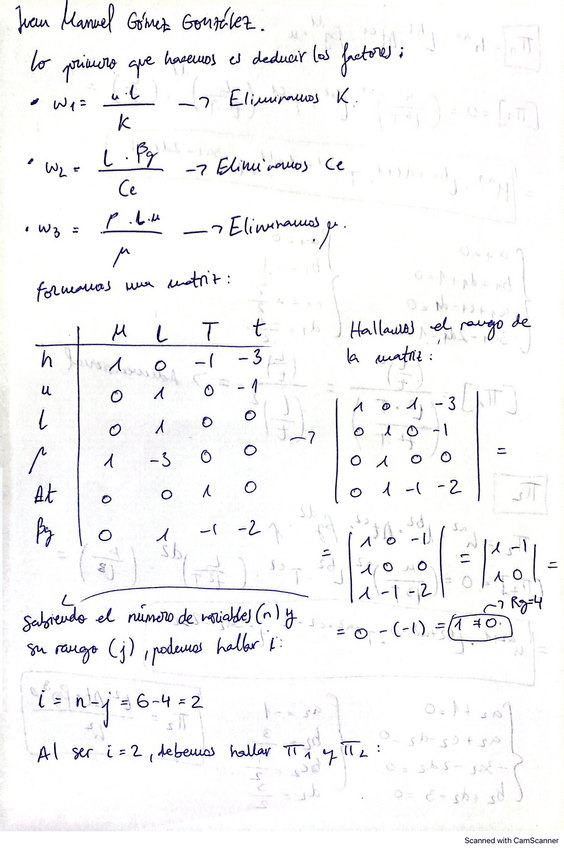 Juan Manuel Gómez González.
Lo primero que hacemos es deducir los factores:
• W1 = u.L / K → Eliminamos K.
• W2 = L . βg / Ce → Eliminamos Ce
• W3 = ρ . L . u / μ → Eliminamos μ.
formamos una matriz:
M L T t
h 1 0 -1 -3
u 0 1 0 -1
l 0 1 0 0
ρ 1 -3 0 0
Δt 0 0 1 0
βg 0 1 -1 -2
Hallamos el rango de
la matriz:
→ | 1 0 1 -3 |
| 0 1 0 -1 |
| 0 1 0 0 | =
| 0 1 -1 -2 |
= | 1 0 -1 | = | 1 -1 | =
| 1 0 0 | | 1 0 |
| 1 -1 -2 |
→ Rg=4
= 0 - (-1) = 1 ≠ 0.
Sabiendo el número de variables (n) y
su rango (j), podemos hallar i:
i = n-j = 6-4 = 2
Al ser i = 2, debemos hallar π1 y π2:
Scanned with CamScanner